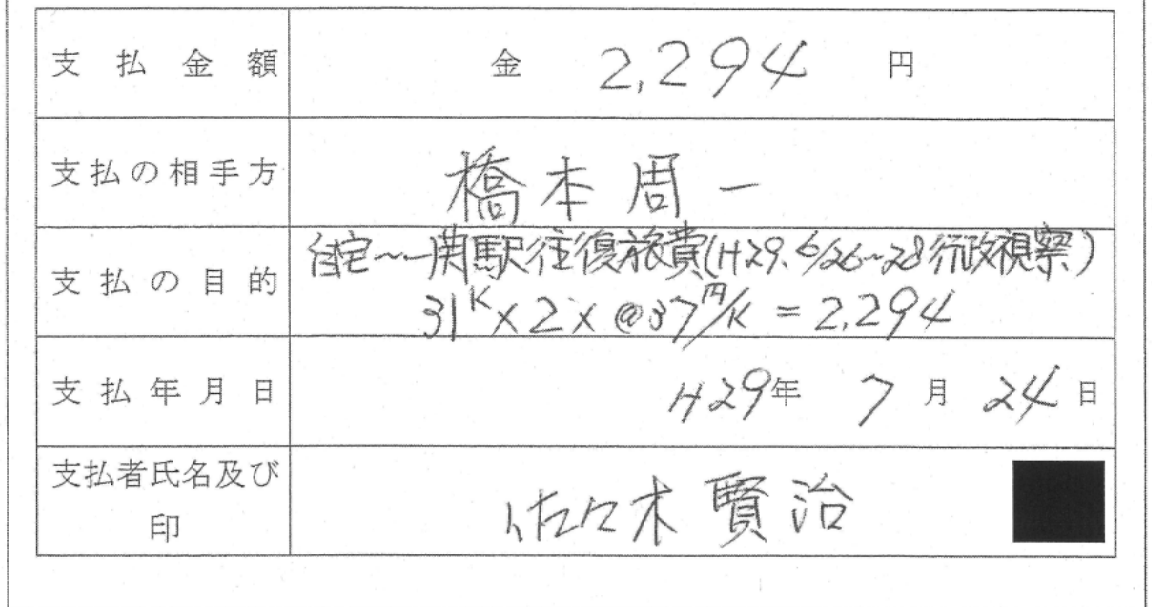 支払金額 金 2,294 円
支払の相手方 橋本周一
自宅~一関駅往復旅費(H29.6/26~28行政視察)
支払の目的
31K×2×@37円/K=2,294
支払年月日 H29年 7月 24日
支払者氏名及び
印
佐々木賢治